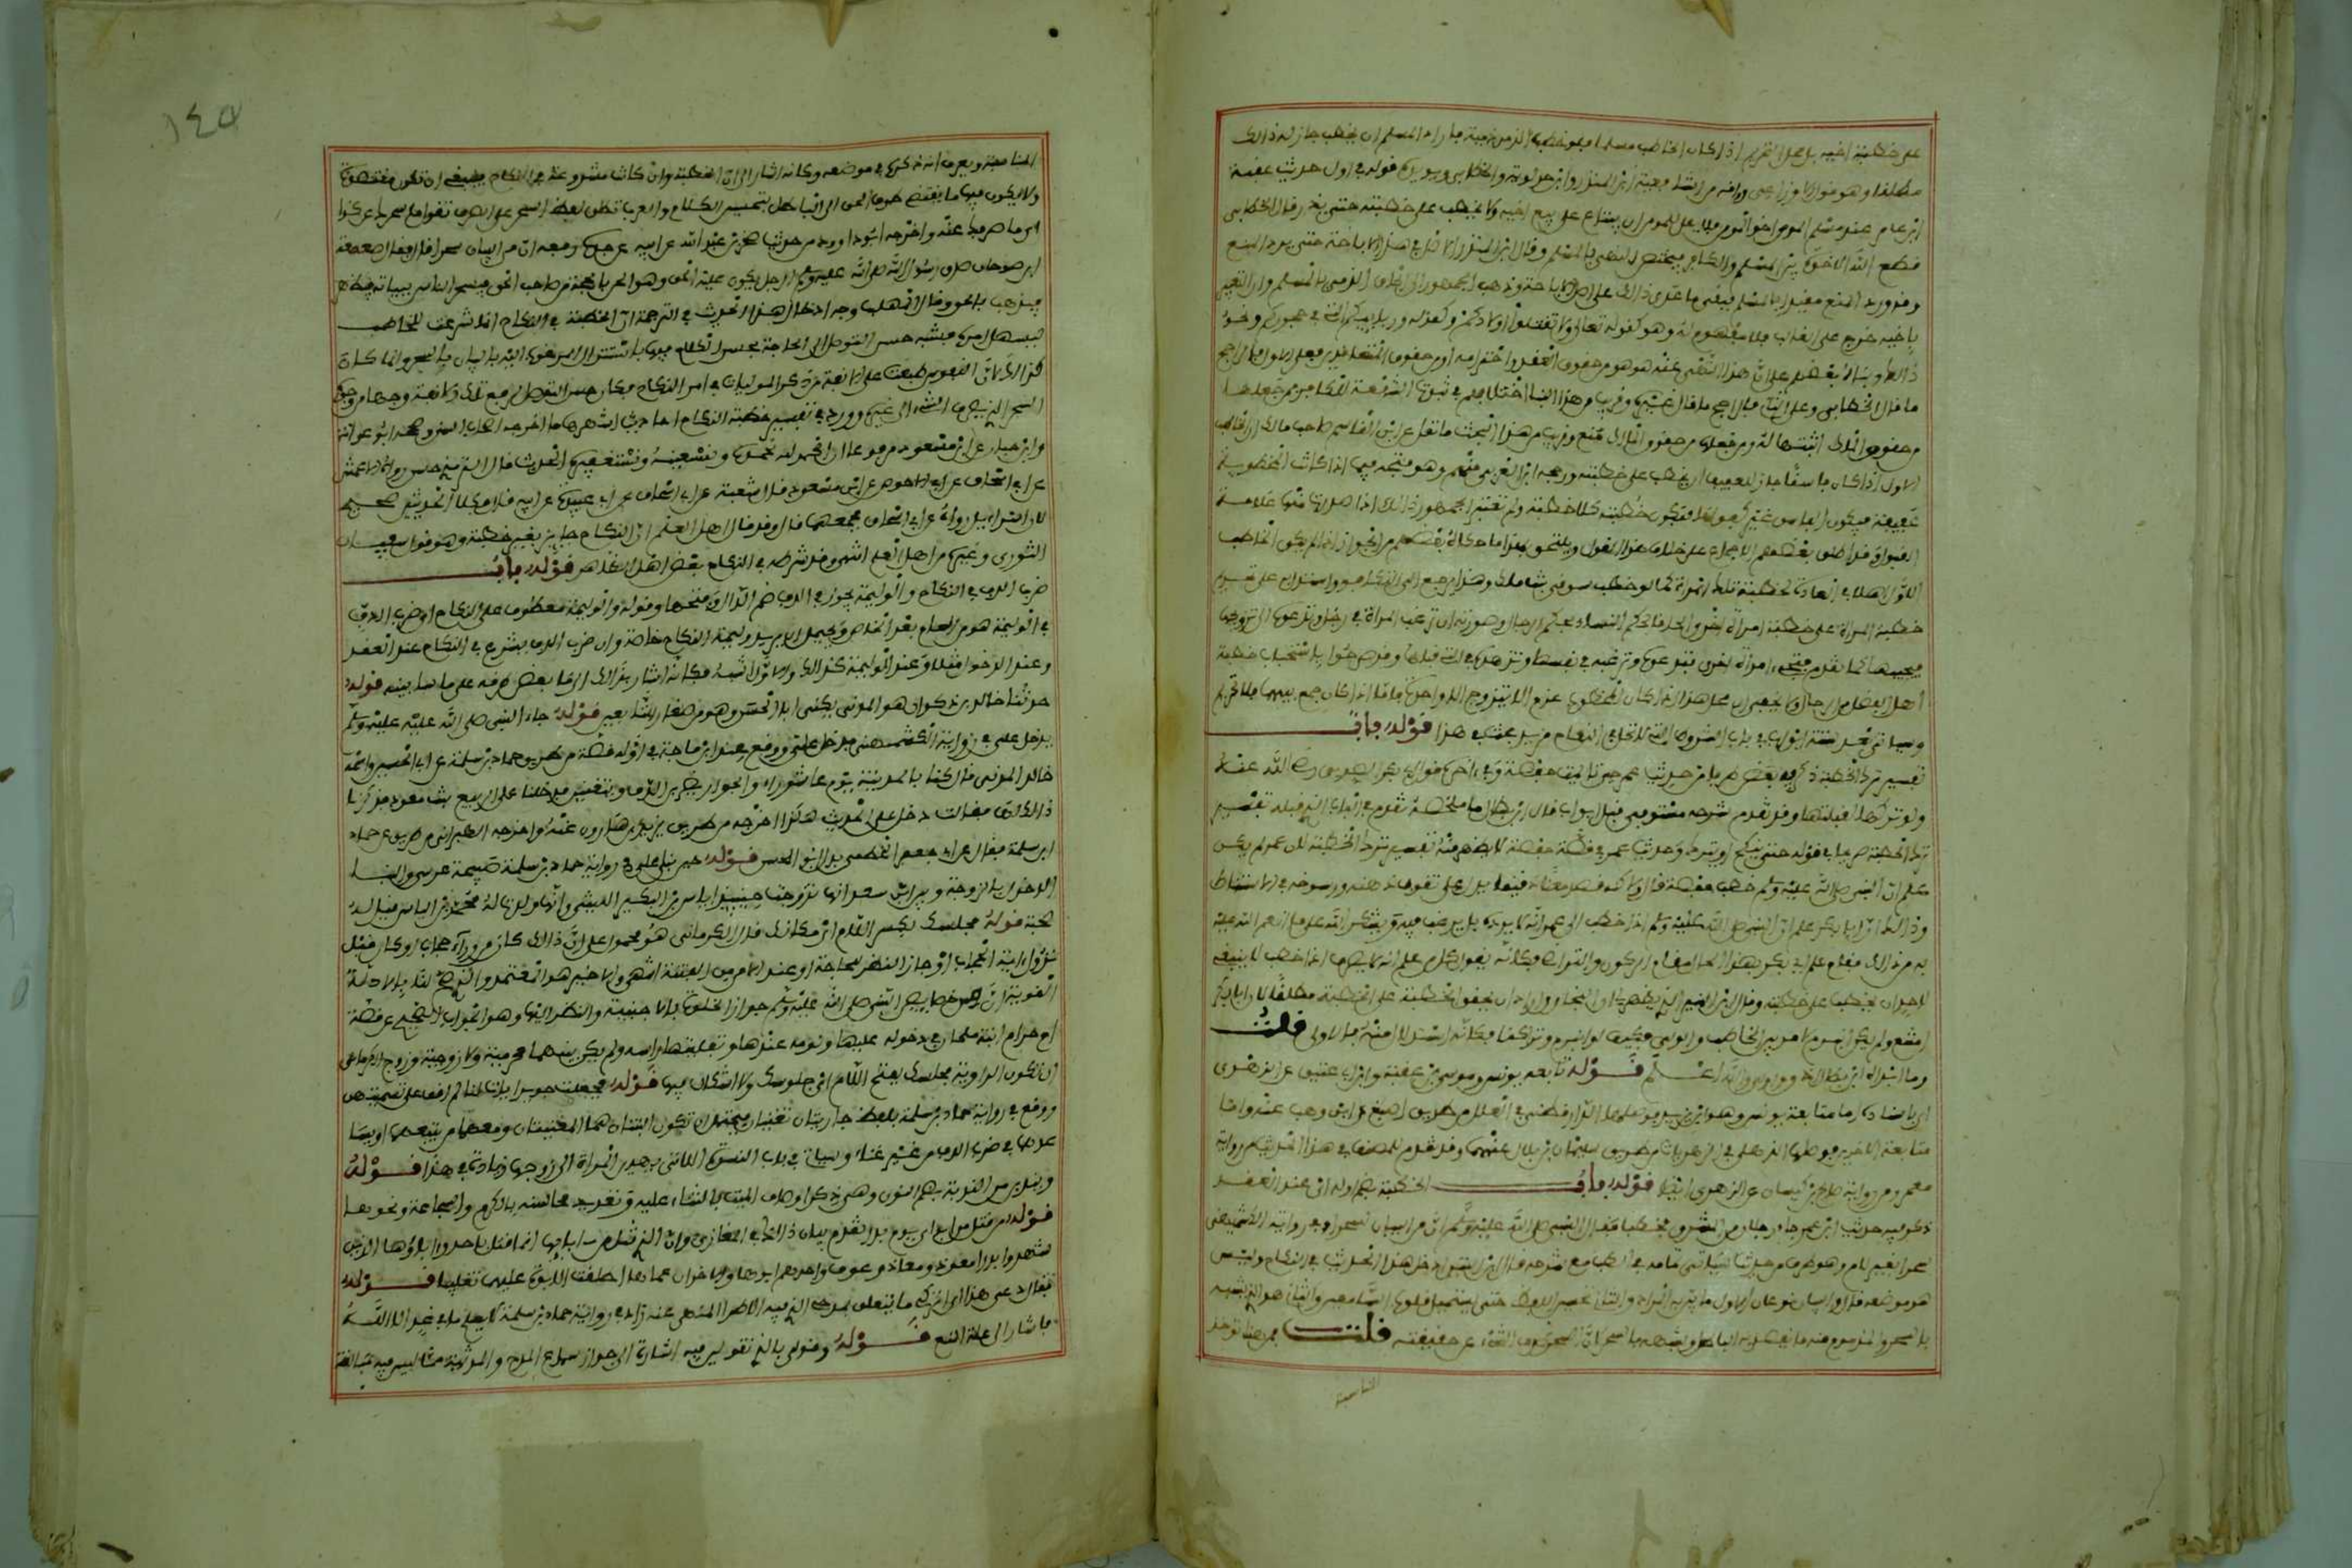 على خطبة اخيه بل محل التحريم اذا كان الخاطب مسلما فلو خطب الذمي ذمية فاراد المسلم ان يخطب جاز له ذالك
مطلقا وهو قول الاوزاعي ووافقه من الشافعية ابن المنذر وابن جويرية والخطابي ويويده قوله في اول حديث عقبة
ابن عامر عند مسلم المومن اخو المومن فلا يحل للمومن ان يبتاع على بيع اخيه ولا يخطب على خطبته حتى يذر وقال الخطابي
قطع الله الاخوة بين المسلم والكافر فيختص النهي بالمسلم وقال ابن المنذر الاصل في هذا الاباحة حتى يرد المنع
وقد ورد المنع مقيدا بالمسلم فبقي ما عدى ذالك على اصل الاباحة وذهب الجمهور الى الحاق الذمي بالمسلم وان التعبير
باخيه خرج على الغالب فلا مفهوم له وهو كقوله تعالى ولا تقتلوا اولادكم وكقوله وربايبكم الاتي في حجوركم ونحو
ذالك وبناه بعضهم على ان هذا النهي عنه هل هو من حقوق العقد واحترامه او من حقوق المتعاقدين فعلى الاول فالراجح
ما قال الخطابي وعلى الثاني فالراجح ما قال غيره وقريب من هذا البنا اختلافهم في ثبوت الشفعة للكافر فمن جعلها
من حقوق الملك اثبتها له ومن جعلها من حقوق المالك منع وقريب من هذا البحث ما نقل عن ابن القاسم صاحب مالك ان الخاطب
الاول اذا كان فاسقا جاز للعفيف ان يخطب على خطبته ورجحه ابن العربي منهم وهو متجه فيما اذا كانت المخطوبة
عفيفة فيكون الفاسق غير كفو لها فتكون خطبته كلا خطبة ولم يعتبر الجمهور ذالك اذا صدرت منها علامة
القبول وقد اطلق بعضهم الاجماع على خلاف هذا القول ويلتحق بهذا ما حكاه بعضهم من الجواز اذا لم يكن الخاطب
الاول اهلا في العادة لخطبة تلك المرأة كما لو خطب سوقي بنت ملك وهذا يرجع الى التكافؤ واستدل به على تحريم
خطبة المرأة على خطبة امرأة اخرى الحاقا لحكم النساء بحكم الرجال وصورته ان ترغب امرأة في رجل وتدعوه الى تزويجها
فيجيبها كما تقدم فتجيء امرأة اخرى فتدعوه وترغبه في نفسها وتزهده في التي قبلها وقد صرحوا باستحباب خطبة
اهل الفضل من الرجال ولا يخفى ان محل هذا اذا كان المخطوب عزم الا يتزوج الا واحدة فاما اذا كان جمع بينهما فلا تحريم
وسياتي بعد ستة ابواب في باب الشروط التي لا تحل في النكاح مزيد بحث في هذا قوله باب
تفسير ترك الخطبة ذكر فيه بعض طريق من حديث عمر حين تايمت حفصة وفي اخره قول ابي بكر الصديق رضي الله عنه
ولو تركها قبلتها وقد تقدم شرحه مستوفى قبل ابواب قال ابن بطال ما ملخصه تقدم في الباب الذي قبله تفسير
ترك الخطبة صريحا في قوله حتى ينكح او يترك وحديث عمر في قصة حفصة لا يظهر منه تفسير ترك الخطبة لان عمر لم يكن
علم ان النبي صلى الله عليه وسلم خطب حفصة قال ولاكنه قصد معنى دقيقا يدل على ثقوب ذهنه ورسوخه في الاستنباط
وذالك ان ابا بكر علم ان النبي صلى الله عليه وسلم اذا خطب الى عمر انه لا يرده بل يرغب فيه ويشكر الله على ما انعم الله عليه
به من ذالك فقام علم ابي بكر بهذا الحال مقام الركون والتراضي فكأنه يقول كل من علم انه لا يصرف اذا خطب لا ينبغي
لاحد ان يخطب على خطبته وقال ابن المنير الذي يظهر لي ان البخاري اراد ان يحقق الخطبة على الخطبة مطلقا لان ابا بكر
امتنع ولم يكن انبرم الامر بين الخاطب والولي فكيف لو انبرم وتراكنا فكأنه استدلال منه بالاولى قلت
وما ابداه ابن بطال ادق واولى والله اعلم قوله تابعه يونس وموسى بن عقبة وابن ابي عتيق عن الزهري
اي باسناده اما متابعة يونس وهو ابن يزيد فوصلها الدارقطني في العلل من طريق اصبغ عن ابن وهب عنه واما
متابعة الاخرين فوصلها الذهلي في الزهريات من طريق سليمان بن بلال عنهما وقد تقدم للمصنف هذا الحديث من رواية
معمر ومن رواية صالح بن كيسان عن الزهري ايضا قوله باب الخطبة بضم اوله اي عند العقد
ذكر فيه حديث ابن عمر جاء رجلان من المشرق فخطبا فقال النبي صلى الله عليه وسلم ان من البيان لسحرا وفي رواية الكشميهني
سحرا بغير لام وهو طرف من حديث سياتي تمامه في الطب مع شرحه قال ابن التين ادخل هذا الحديث في النكاح وليس
هو موضعه قال والبيان نوعان الاول ما يبين به المراد والثاني تحسين اللفظ حتى يستميل قلوب السامعين والثاني هو الذي يشبه
بالسحر والمذموم منه ما يقصد به الباطل وشبهه بالسحر لان السحر صرف الشيء عن حقيقته قلت فمن هنا توخذ
المناسبة
المناسبة ويعرف انه ذكره في موضعه وكانه اشار الى ان الخطبة وان كانت مشروعة في النكاح فينبغي ان تكون مقتصدة
ولا يكون فيها ما يقتضي صرف الحق الى الباطل بتحسين الكلام والعرب تطلق لفظ السحر على الصرف تقول ما سحرك عن كذا
اي ما صرفك عنه واخرجه ابوداوود من حديث صخر بن عبد الله عن ابيه عن جده رفعه ان من البيان سحرا قال فقال صعصعة
ابن صوحان صدق رسول الله صلى الله عليه وسلم الرجل يكون عليه الحق وهو الحن بالحجة من صاحب الحق فيسحر الناس ببيانه
فيذهب بالحق وقال المهلب وجه ادخال هذا الحديث في الترجمة ان الخطبة في النكاح انما شرعت للخاطب
ليسهل امره فشبه حسن التوصل الى الحاجة بحسن الكلام فيها باستنزال المرغوب اليه بالبيان بالسحر وانما كان
كذالك لان النفوس طبعت على الانفة من ذكر الموليات في امر النكاح فكان حسن التوصل لرفع تلك الانفة وجها من وجوه
السحر الذي يصرف الشيء الى غيره وورد في تفسير خطبة النكاح احاديث اشهرها ما اخرجه اصحاب السنن وصححه ابو عوانة
وابن حبان عن ابن مسعود مرفوعا ان الحمد لله نحمده ونستعينه ونستغفره الحديث قال الترمذي حسن رواه الاعمش
عن ابي اسحاق عن ابي الاحوص عن ابن مسعود وقال شعبة عن ابي اسحاق عن ابي عبيدة عن ابيه قال وكلا الحديثين صحيح
لان اسراءيل رواه عن ابي اسحاق فجمعهما قال وقد قال اهل العلم ان النكاح جايز بغير خطبة وهو قول سفيان
الثوري وغيره من اهل العلم انتهى وقد شرطه في النكاح بعض اهل الظاهر قوله باب
ضرب الدف في النكاح والوليمة يجوز في الدف ضم الدال وفتحها وقوله والوليمة معطوف على النكاح اي ضرب الدف
في الوليمة وهو من العام بعد الخاص ويحتمل ان يريد وليمة النكاح خاصة وان ضرب الدف يشرع في النكاح عند العقد
وعند الدخول مثلا وعند الوليمة كذالك والاول اشبه فكأنه اشار بذالك الى ما في بعض طرقه على ما سابينه قوله
حدثنا خالد بن ذكوان هو المدني يكنى ابا الحسن وهو من صغار التابعين قوله جاء النبي صلى الله عليه وسلم
يدخل علي في رواية الكشميهني فدخل علي ووقع عند ابن ماجة في اوله قصة من طريق حماد بن سلمة عن ابي الحسين واسمه
خالد المدني قال كنا بالمدينة يوم عاشوراء والجوار يضربن بالدف ويتغنين فدخلنا على الربيع بنت معوذ فذكرنا
ذالك لها فقالت دخل علي الحديث هكذا اخرجه من طريق يزيد بن هارون عنه واخرجه الطبراني من طريق عن حماد
ابن سلمة فقال عن ابي جعفر الخطمي بدل ابي الحسين قوله حين بني علي في رواية حماد بن سلمة صبيحة عرسي والبنا
الدخول بالزوجة وبين ابن سعد انها تزوجت حينيذ اياس بن البكير الليثي وانها ولدت له محمد بن اياس قيل له
صحبة قوله مجلسك بكسر اللام اي مكانك قال الكرماني هو محمول على ان ذالك كان من وراء حجاب او كان قبل
نزول اية الحجاب او جاز النظر للحاجة او عند الامن من الفتنة انتهى والاخير هو المعتمد والذي وضح لنا بالادلة
القوية ان من خصايص النبي صلى الله عليه وسلم جواز الخلوة بالاجنبية والنظر اليها وهو الجواب الصحيح عن قصة
ام حرام ابنة ملحان في دخوله عليها ونومه عندها وتفليتها راسه ولم يكن بينهما محرمية ولا زوجية وجوز الكرماني
ان تكون الرواية مجلسك بفتح اللام اي جلوسك ولا اشكال فيها قوله فجعلت جويريات لنا لم اقف على تسميتهن
ووقع في رواية حماد بن سلمة بلفظ جاريتان تغنيان فيحتمل ان تكون الثنتان هما المغنيتان ومعهما من يتبعهما او يساعدهما
في ضرب الدف من غير غناء وسيات في باب النسوة اللاتي يهدين المرأة الى زوجها زيادة في هذا قوله
ويندبن من الندبة بضم النون وهي ذكر اوصاف الميت بالثناء عليه وتعديد محاسنه بالكرم والشجاعة ونحوها
قوله من قتل من اباءي يوم بدر تقدم بيان ذالك في المغازي وان الذي قتل من اباءها انما قتل باحد واباؤها الذين
شهدوا بدرا معوذ ومعاذ وعوف واحدهم ابوها والاخران عماها اطلقت الابوة عليهما تغليبا قوله
فقال دعي هذا اي اتركي ما يتعلق بمدحي الذي فيه الاطراء المنهي عنه زاد في رواية حماد بن سلمة لا يعلم ما في غد الا الله
فاشار الى علة المنع قوله وقولي بالذي تقولين فيه اشارة الى جواز سماع المدح والمرثية مما ليس فيه مبالغة
١٤٥